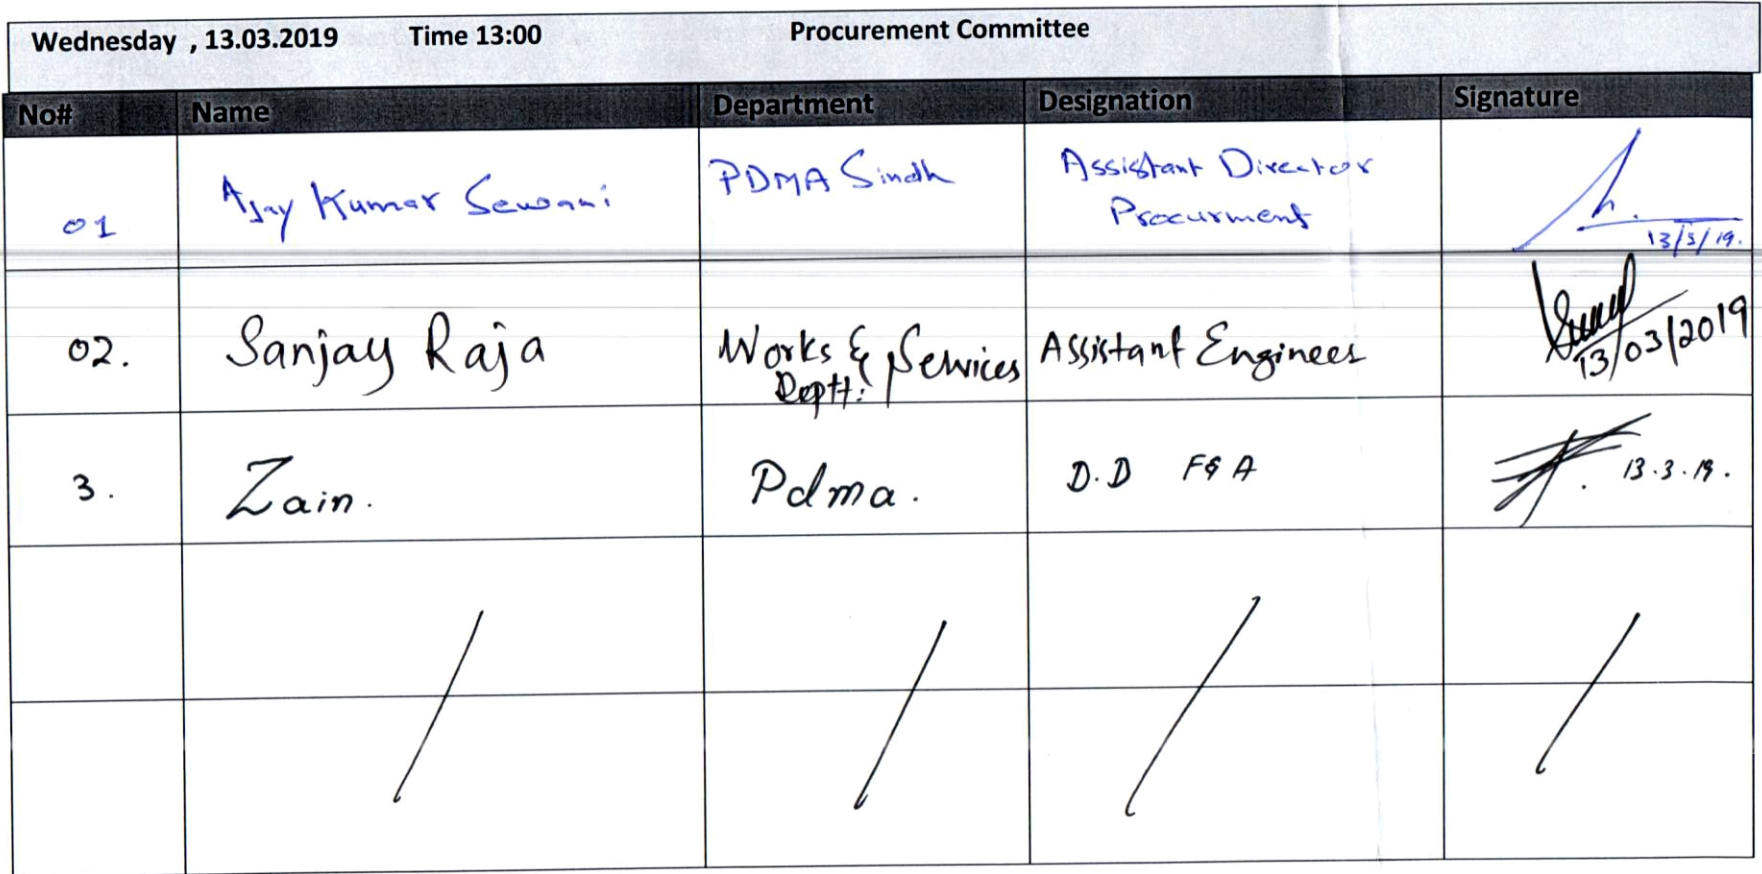 Wednesday , 13.03.2019 Time 13:00 Procurement Committee
No# Name Department Designation Signature
01 Ajay Kumar PDMA Sindh Assistant Director
Procurment
13/3/19.
02. Sanjay Raja Works & Services Assistant Engineer
Deptt:
13/03/2019
3. Zain. Pdma. D.D F&A 13.3.19.